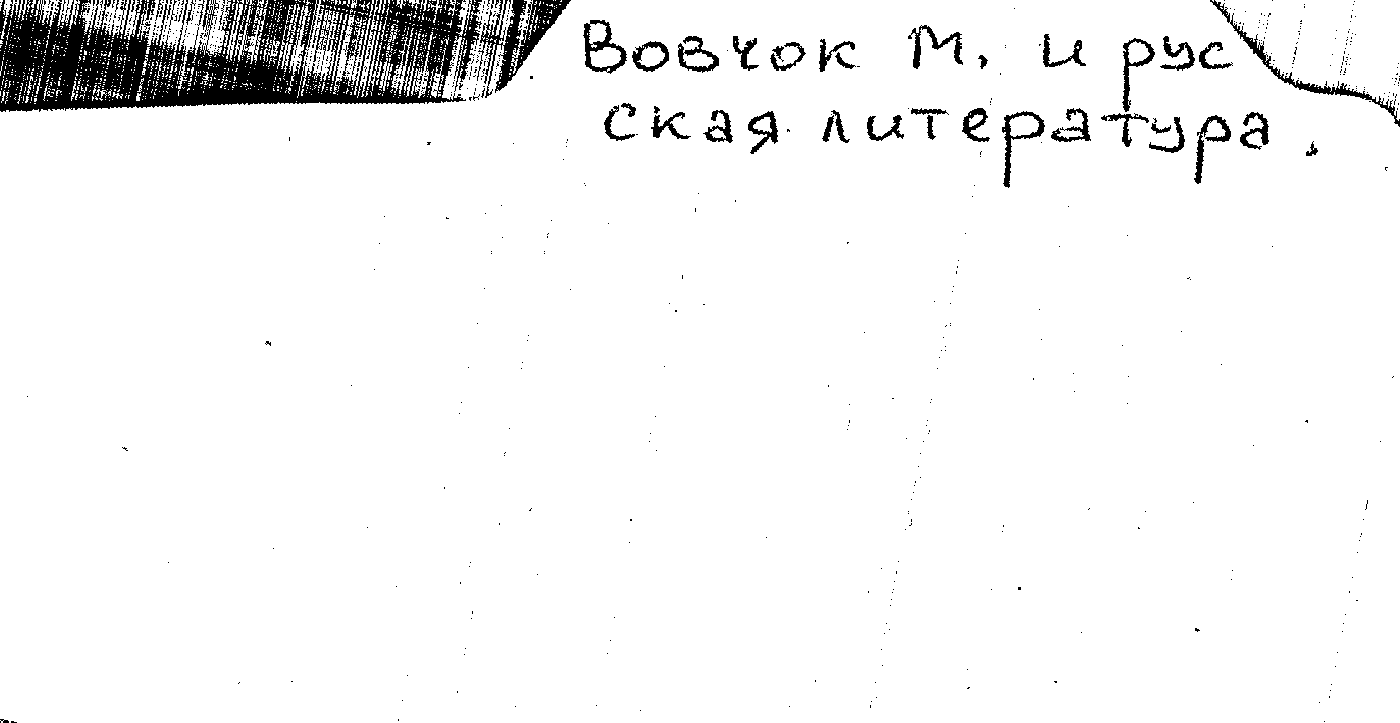 Вовчок М. и рус
ская литература.